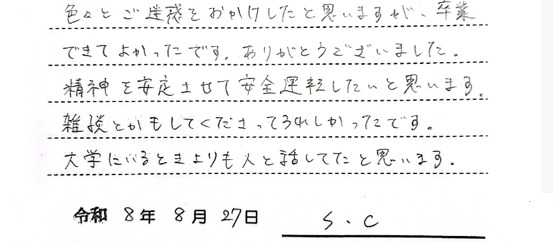 色々とご迷惑をおかけしたと思いますが、卒業
できてよかったです。ありがとうございました。
精神を安定させて安全運転したいと思います。
雑談とかもしてくださってうれしかったです。
大学にいるときよりも人と話してたと思います。
令和 8年 8月 27日 S.C